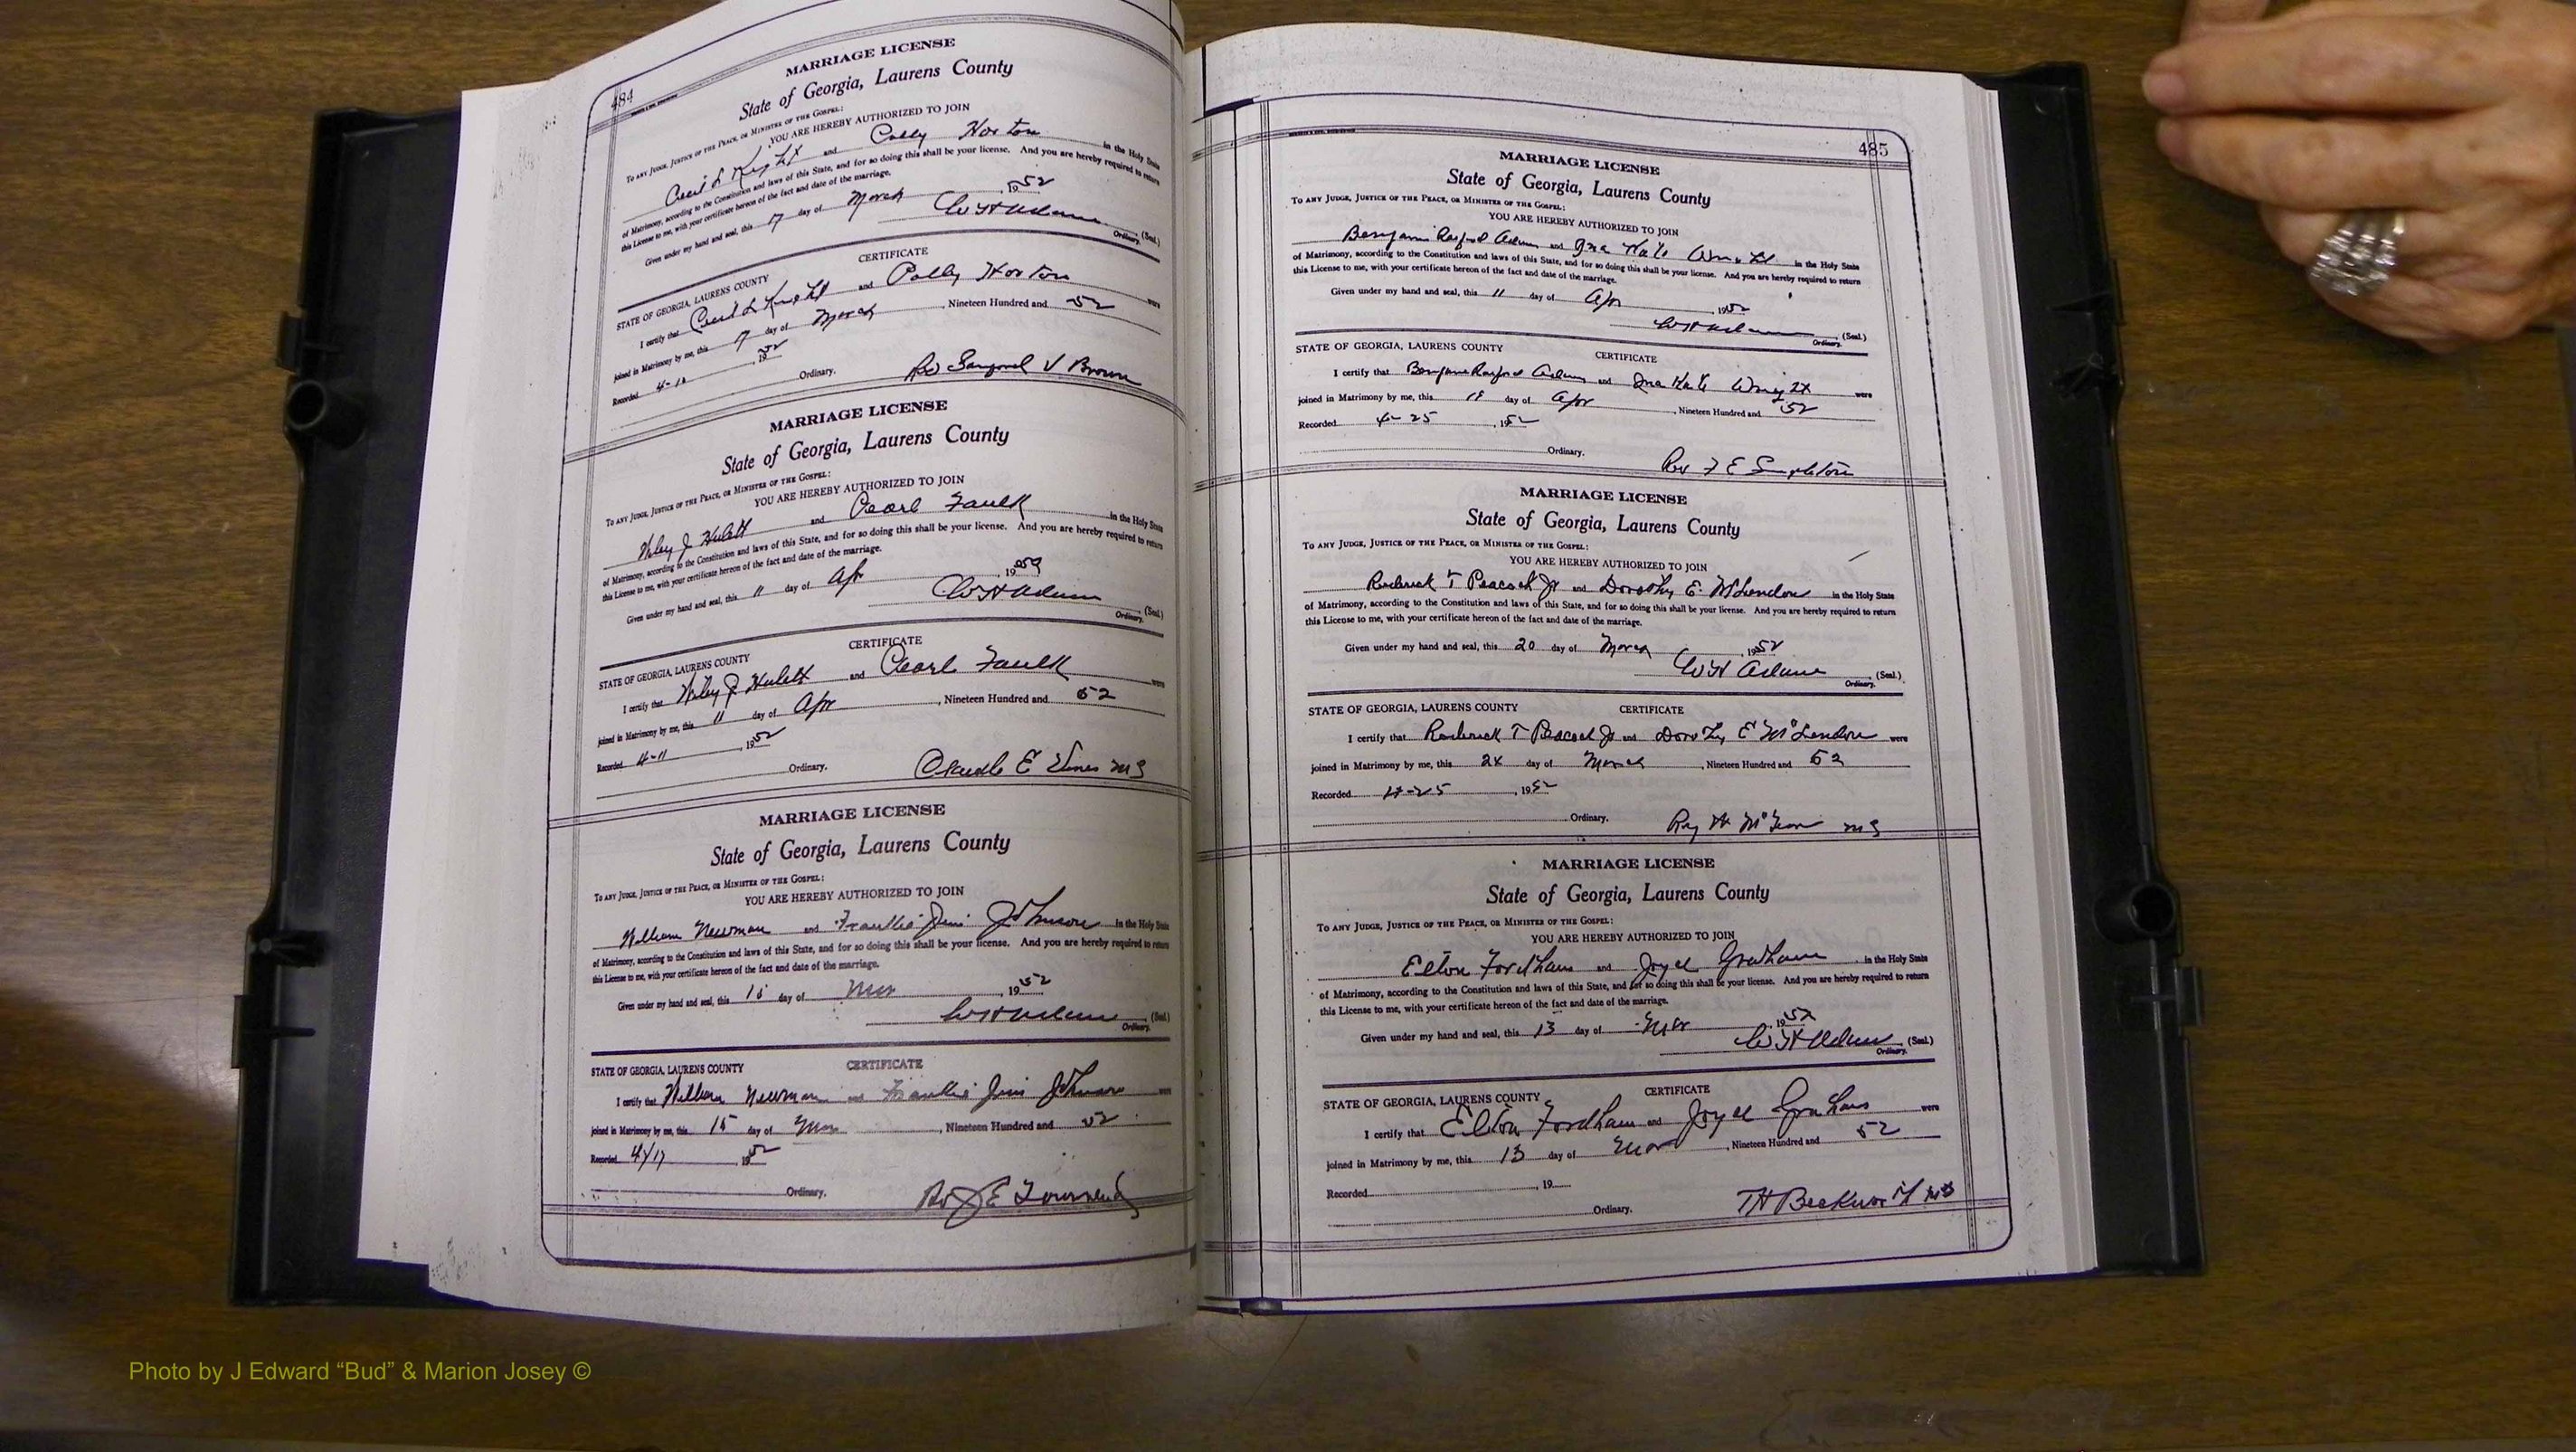 484
MARRIAGE LICENSE
State of Georgia, Laurens County
To any Judge, Justice of the Peace, or Minister of the Gospel:
YOU ARE HEREBY AUTHORIZED TO JOIN
Cecil L Knight and Polly Horton in the Holy State
of Matrimony, according to the Constitution and laws of this State, and for so doing this shall be your license. And you are hereby required to return
this License to me, with your certificate hereon of the fact and date of the marriage.
Given under my hand and seal, this 17 day of March, 1952
W H Adams (Seal.)
Ordinary.
CERTIFICATE
STATE OF GEORGIA, LAURENS COUNTY
I certify that Cecil L Knight and Polly Horton were
joined in Matrimony by me, this 17 day of March, Nineteen Hundred and 52
Recorded 1952
Ordinary.
Rev V Brown
MARRIAGE LICENSE
State of Georgia, Laurens County
To any Judge, Justice of the Peace, or Minister of the Gospel:
YOU ARE HEREBY AUTHORIZED TO JOIN
Wiley J Hulett and Pearl Faulk in the Holy State
of Matrimony, according to the Constitution and laws of this State, and for so doing this shall be your license. And you are hereby required to return
this License to me, with your certificate hereon of the fact and date of the marriage.
Given under my hand and seal, this 11 day of Apr, 19
W H Adams (Seal.)
Ordinary.
CERTIFICATE
STATE OF GEORGIA, LAURENS COUNTY
I certify that Wiley J Hulett and Pearl Faulk were
joined in Matrimony by me, this 11 day of Apr, Nineteen Hundred and 52
Recorded 4-11, 1952
Ordinary.
Claude E Vines MG
MARRIAGE LICENSE
State of Georgia, Laurens County
To any Judge, Justice of the Peace, or Minister of the Gospel:
YOU ARE HEREBY AUTHORIZED TO JOIN
William Newman and Frankie Jim Johnson in the Holy State
of Matrimony, according to the Constitution and laws of this State, and for so doing this shall be your license. And you are hereby required to return
this License to me, with your certificate hereon of the fact and date of the marriage.
Given under my hand and seal, this 15 day of Mar, 1952
W H Adams (Seal)
Ordinary.
CERTIFICATE
STATE OF GEORGIA, LAURENS COUNTY
I certify that William Newman and Frankie Jim Johnson were
joined in Matrimony by me, this 15 day of Mar, Nineteen Hundred and 52
Recorded 4/17, 1952
Ordinary.
Rev J E Townsend
485
MARRIAGE LICENSE
State of Georgia, Laurens County
To any Judge, Justice of the Peace, or Minister of the Gospel:
YOU ARE HEREBY AUTHORIZED TO JOIN
Benjamin Rayford Adams and Ina Kate Wright in the Holy State
of Matrimony, according to the Constitution and laws of this State, and for so doing this shall be your license. And you are hereby required to return
this License to me, with your certificate hereon of the fact and date of the marriage.
Given under my hand and seal, this 11 day of Apr, 1952
W H Adams (Seal.)
Ordinary.
STATE OF GEORGIA, LAURENS COUNTY CERTIFICATE
I certify that Benjamin Rayford Adams and Ina Kate Wright were
joined in Matrimony by me, this day of Apr, Nineteen Hundred and 52
Recorded 4-25, 1952
Ordinary.
Rev F E Singleton
MARRIAGE LICENSE
State of Georgia, Laurens County
To any Judge, Justice of the Peace, or Minister of the Gospel:
YOU ARE HEREBY AUTHORIZED TO JOIN
Roderick T Peacock Jr and Dorothy E. McLendon in the Holy State
of Matrimony, according to the Constitution and laws of this State, and for so doing this shall be your license. And you are hereby required to return
this License to me, with your certificate hereon of the fact and date of the marriage.
Given under my hand and seal, this 20 day of March, 1952
W H Adams (Seal.)
Ordinary.
STATE OF GEORGIA, LAURENS COUNTY CERTIFICATE
I certify that Roderick T Peacock Jr and Dorothy E McLendon were
joined in Matrimony by me, this day of March, Nineteen Hundred and 52
Recorded 4-25, 1952
Ordinary.
MG
MARRIAGE LICENSE
State of Georgia, Laurens County
To any Judge, Justice of the Peace, or Minister of the Gospel:
YOU ARE HEREBY AUTHORIZED TO JOIN
Elton Fordham and Joyce Graham in the Holy State
of Matrimony, according to the Constitution and laws of this State, and for so doing this shall be your license. And you are hereby required to return
this License to me, with your certificate hereon of the fact and date of the marriage.
Given under my hand and seal, this 13 day of Mar, 1952
W H Adams (Seal.)
Ordinary.
CERTIFICATE
STATE OF GEORGIA, LAURENS COUNTY
I certify that Elton Fordham and Joyce Graham were
joined in Matrimony by me, this 13 day of Mar, Nineteen Hundred and 52
Recorded, 19
Ordinary.
T H Beckworth MG
Photo by J Edward “Bud” & Marion Josey ©